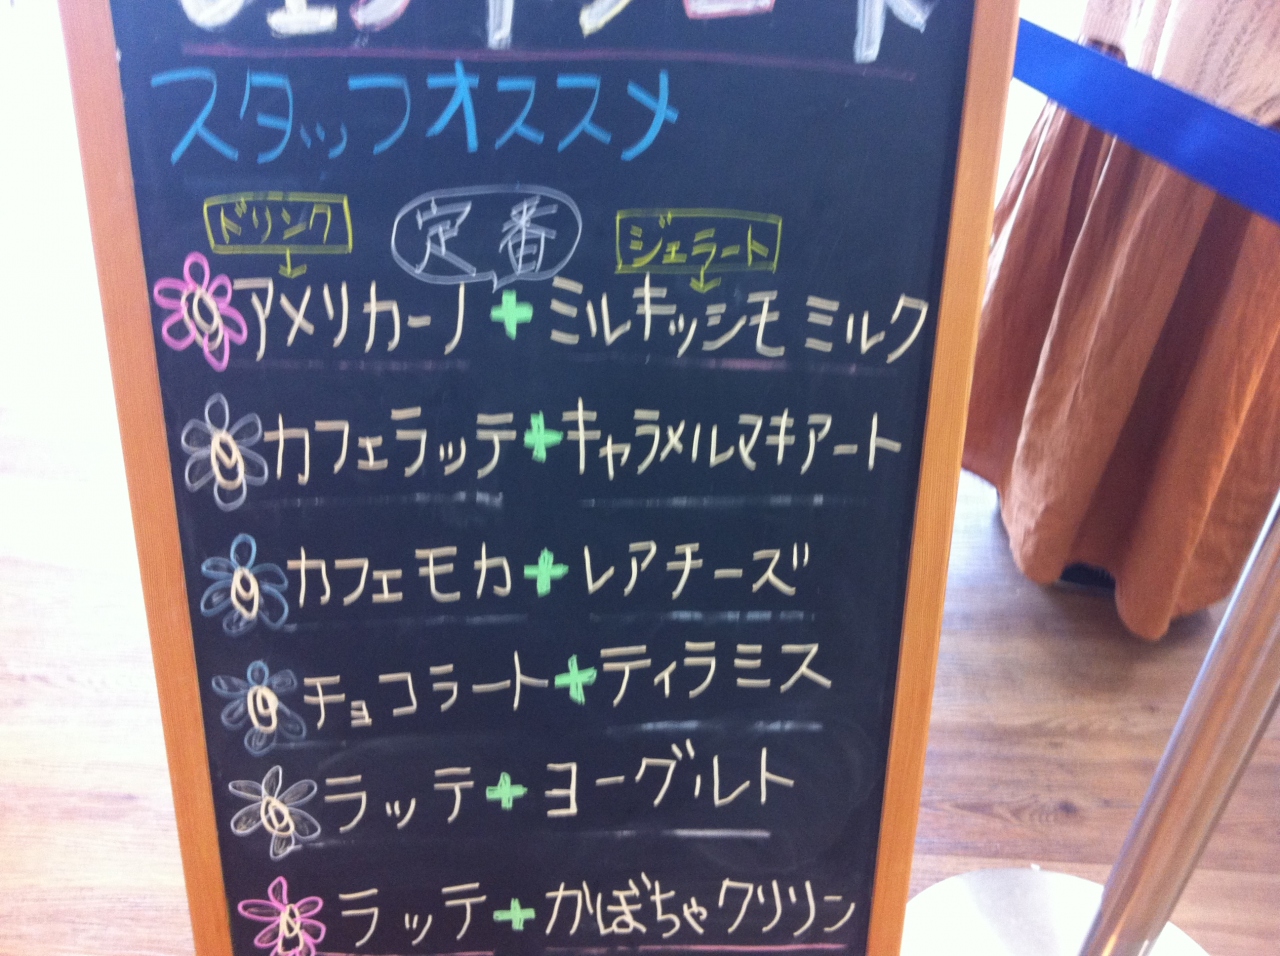 スタッフオススメ
ドリンク 定番 ジェラート
アメリカーノ+ミルキッシモ ミルク
カフェラッテ+キャラメルマキアート
カフェモカ+レアチーズ
チョコラート+ティラミス
ラッテ+ヨーグルト
ラッテ+かぼちゃクリリン